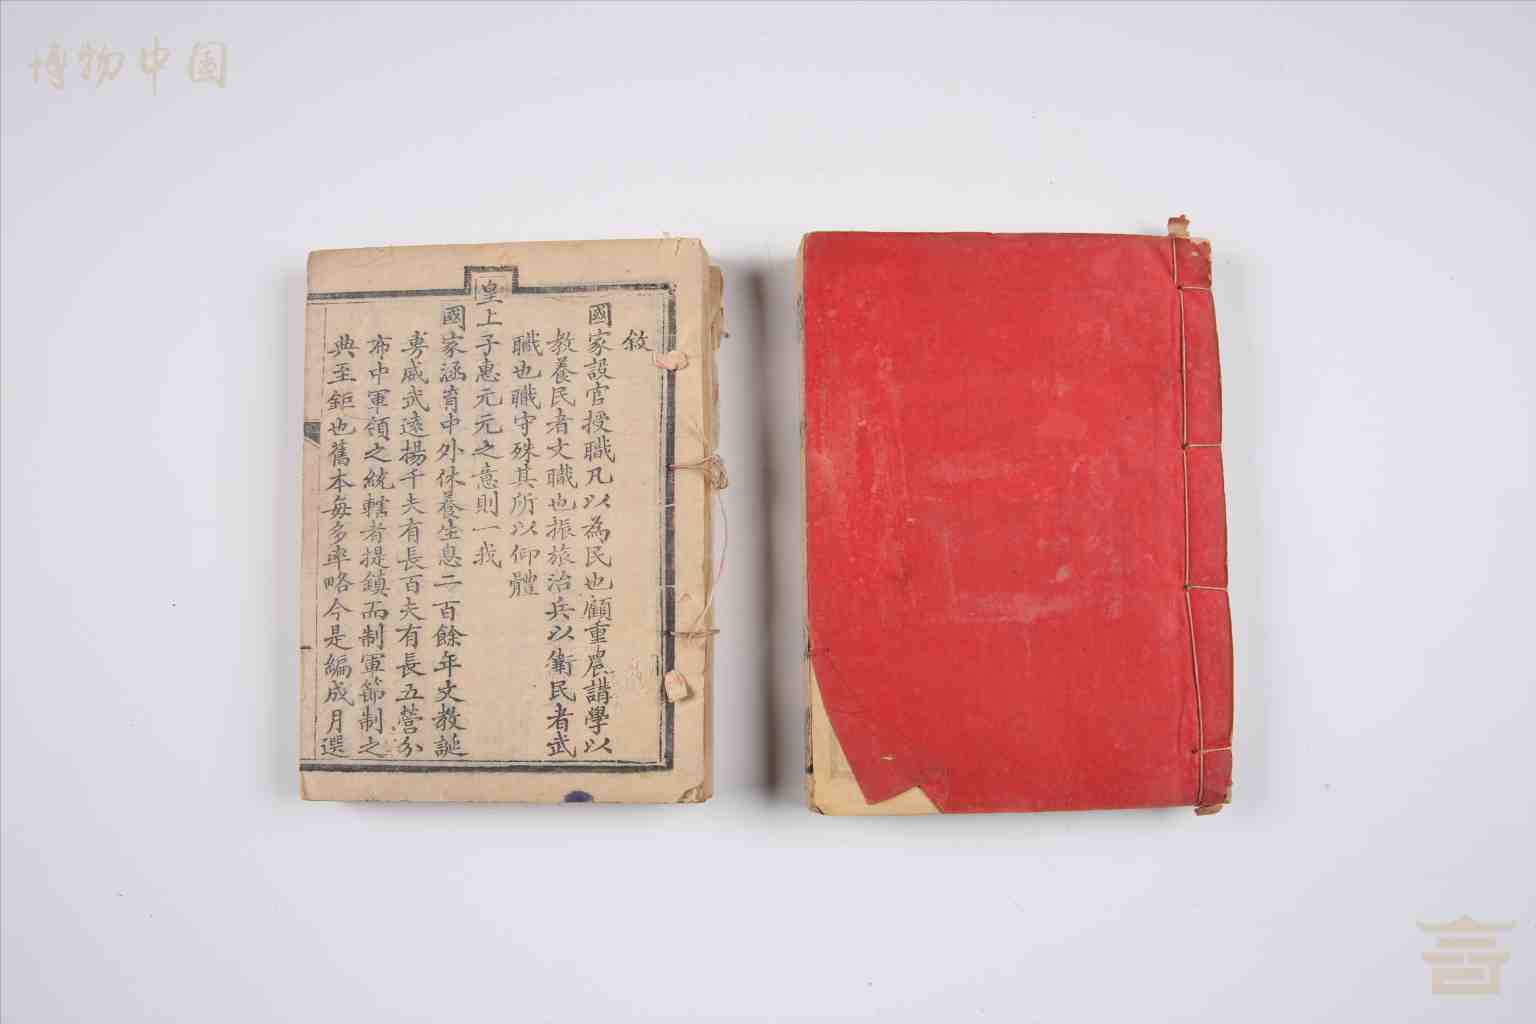 博物中国
敘
國家設官授職凡以為民也顧重農講學以
教養民者文職也振旅治兵以衛民者武
職也職守殊其所以仰體
皇上子惠元元之意則一我
國家涵育中外休養生息二百餘年文教誕
旉威武遠揚千夫有長百夫有長五營分
布中軍領之統轄者提鎮而制軍節制之
典至鉅也舊本每多率略今是編成月選